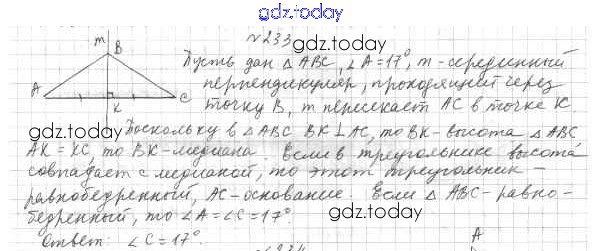 gdz.today
№233
gdz.today
m
B
A
C
K
Пусть дан △ABC, ∠A=17°, m-серединный
перпендикуляр, проходящий через
точку B, m пересекает AC в точке K.
gdz.today
Поскольку в △ABC BK⊥AC, то BK-высота △ABC
AK=KC, то BK-медиана. Если в треугольнике высота
gdz.today
совпадает с медианой, то этот треугольник -
равнобедренный, AC-основание. Если △ABC-равно-
бедренный, то ∠A=∠C=17°.
gdz.today
Ответ: ∠C=17°.
№234
A